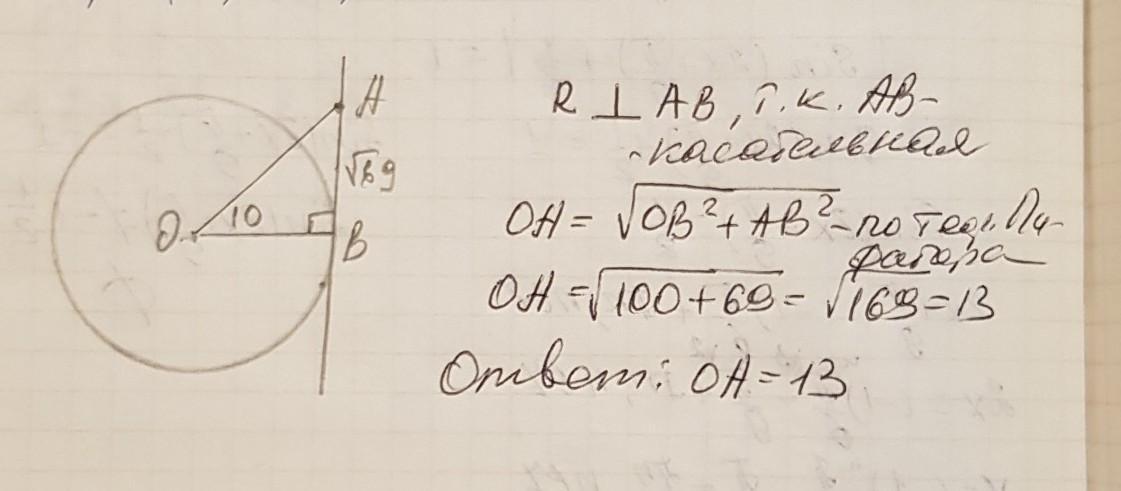 A
√69
10
O
B
R ⊥ AB, т.к. AB-
-касательная
OA = √OB²+AB² - по теор. Пи-
фагора
OA = √100+69 = √169 = 13
Ответ: OA = 13